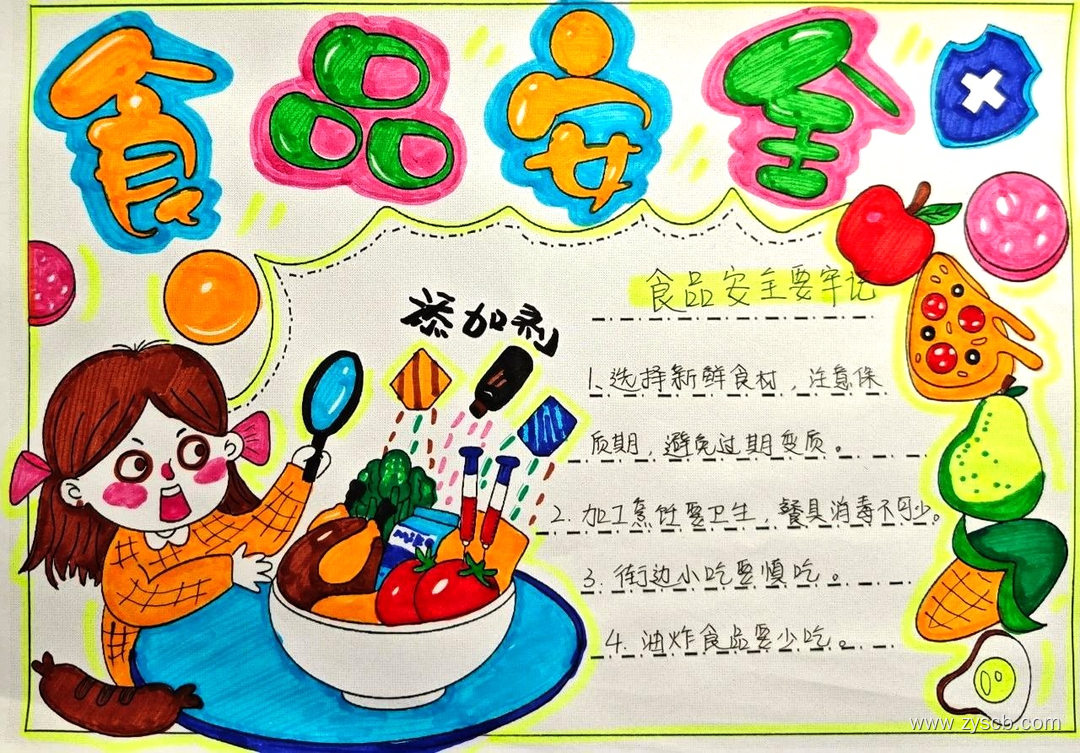 食品安全
添加剂
食品安全要牢记
1、选择新鲜食材，注意保
质期，避免过期变质。
2. 加工烹饪要卫生，餐具消毒不可少。
3. 街边小吃要慎吃。
4. 油炸食品要少吃。
milk
www.zyscb.com